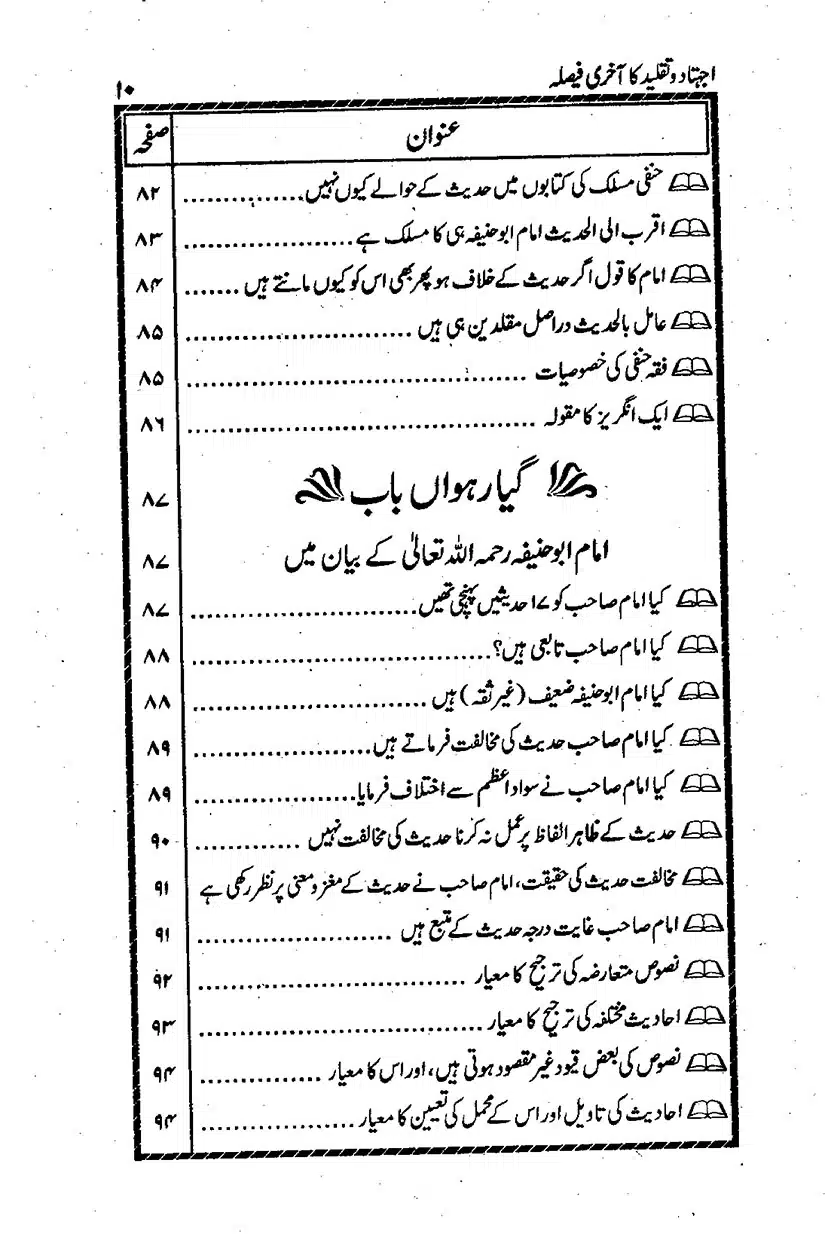 اجتہاد و تقلید کا آخری فیصلہ ۱۰
عنوان صفحہ
حنفی مسلک کی کتابوں میں حدیث کے حوالے کیوں نہیں ................ ۸۲
اقرب الی الحدیث امام ابوحنیفہ ہی کا مسلک ہے ..................... ۸۳
امام کا قول اگر حدیث کے خلاف ہو پھر بھی اس کو کیوں مانتے ہیں ....... ۸۴
عامل بالحدیث دراصل مقلدین ہی ہیں ........................... ۸۵
فقہ حنفی کی خصوصیات ........................................ ۸۵
ایک انگریز کا مقولہ ......................................... ۸۶
گیارہواں باب ۸۷
امام ابوحنیفہ رحمہ اللہ تعالیٰ کے بیان میں ۸۷
کیا امام صاحب کو ۱۷ حدیثیں پہنچی تھیں ........................... ۸۷
کیا امام صاحب تابعی ہیں؟ ................................... ۸۸
کیا امام ابوحنیفہ ضعیف (غیر ثقہ) ہیں ............................ ۸۸
کیا امام صاحب حدیث کی مخالفت فرماتے ہیں ..................... ۸۹
کیا امام صاحب نے سواد اعظم سے اختلاف فرمایا ................... ۸۹
حدیث کے ظاہر الفاظ پر عمل نہ کرنا حدیث کی مخالفت نہیں ............. ۹۰
مخالفت حدیث کی حقیقت، امام صاحب نے حدیث کے مغز و معنی پر نظر رکھی ہے ۹۱
امام صاحب غایت درجہ حدیث کے متبع ہیں ....................... ۹۱
نصوص متعارضہ کی ترجیح کا معیار ................................ ۹۲
احادیث مختلفہ کی ترجیح کا معیار ................................. ۹۳
نصوص کی بعض قیود غیر مقصود ہوتی ہیں، اور اس کا معیار .............. ۹۴
احادیث کی تاویل اور اس کے محمل کی تعیین کا معیار ................... ۹۴